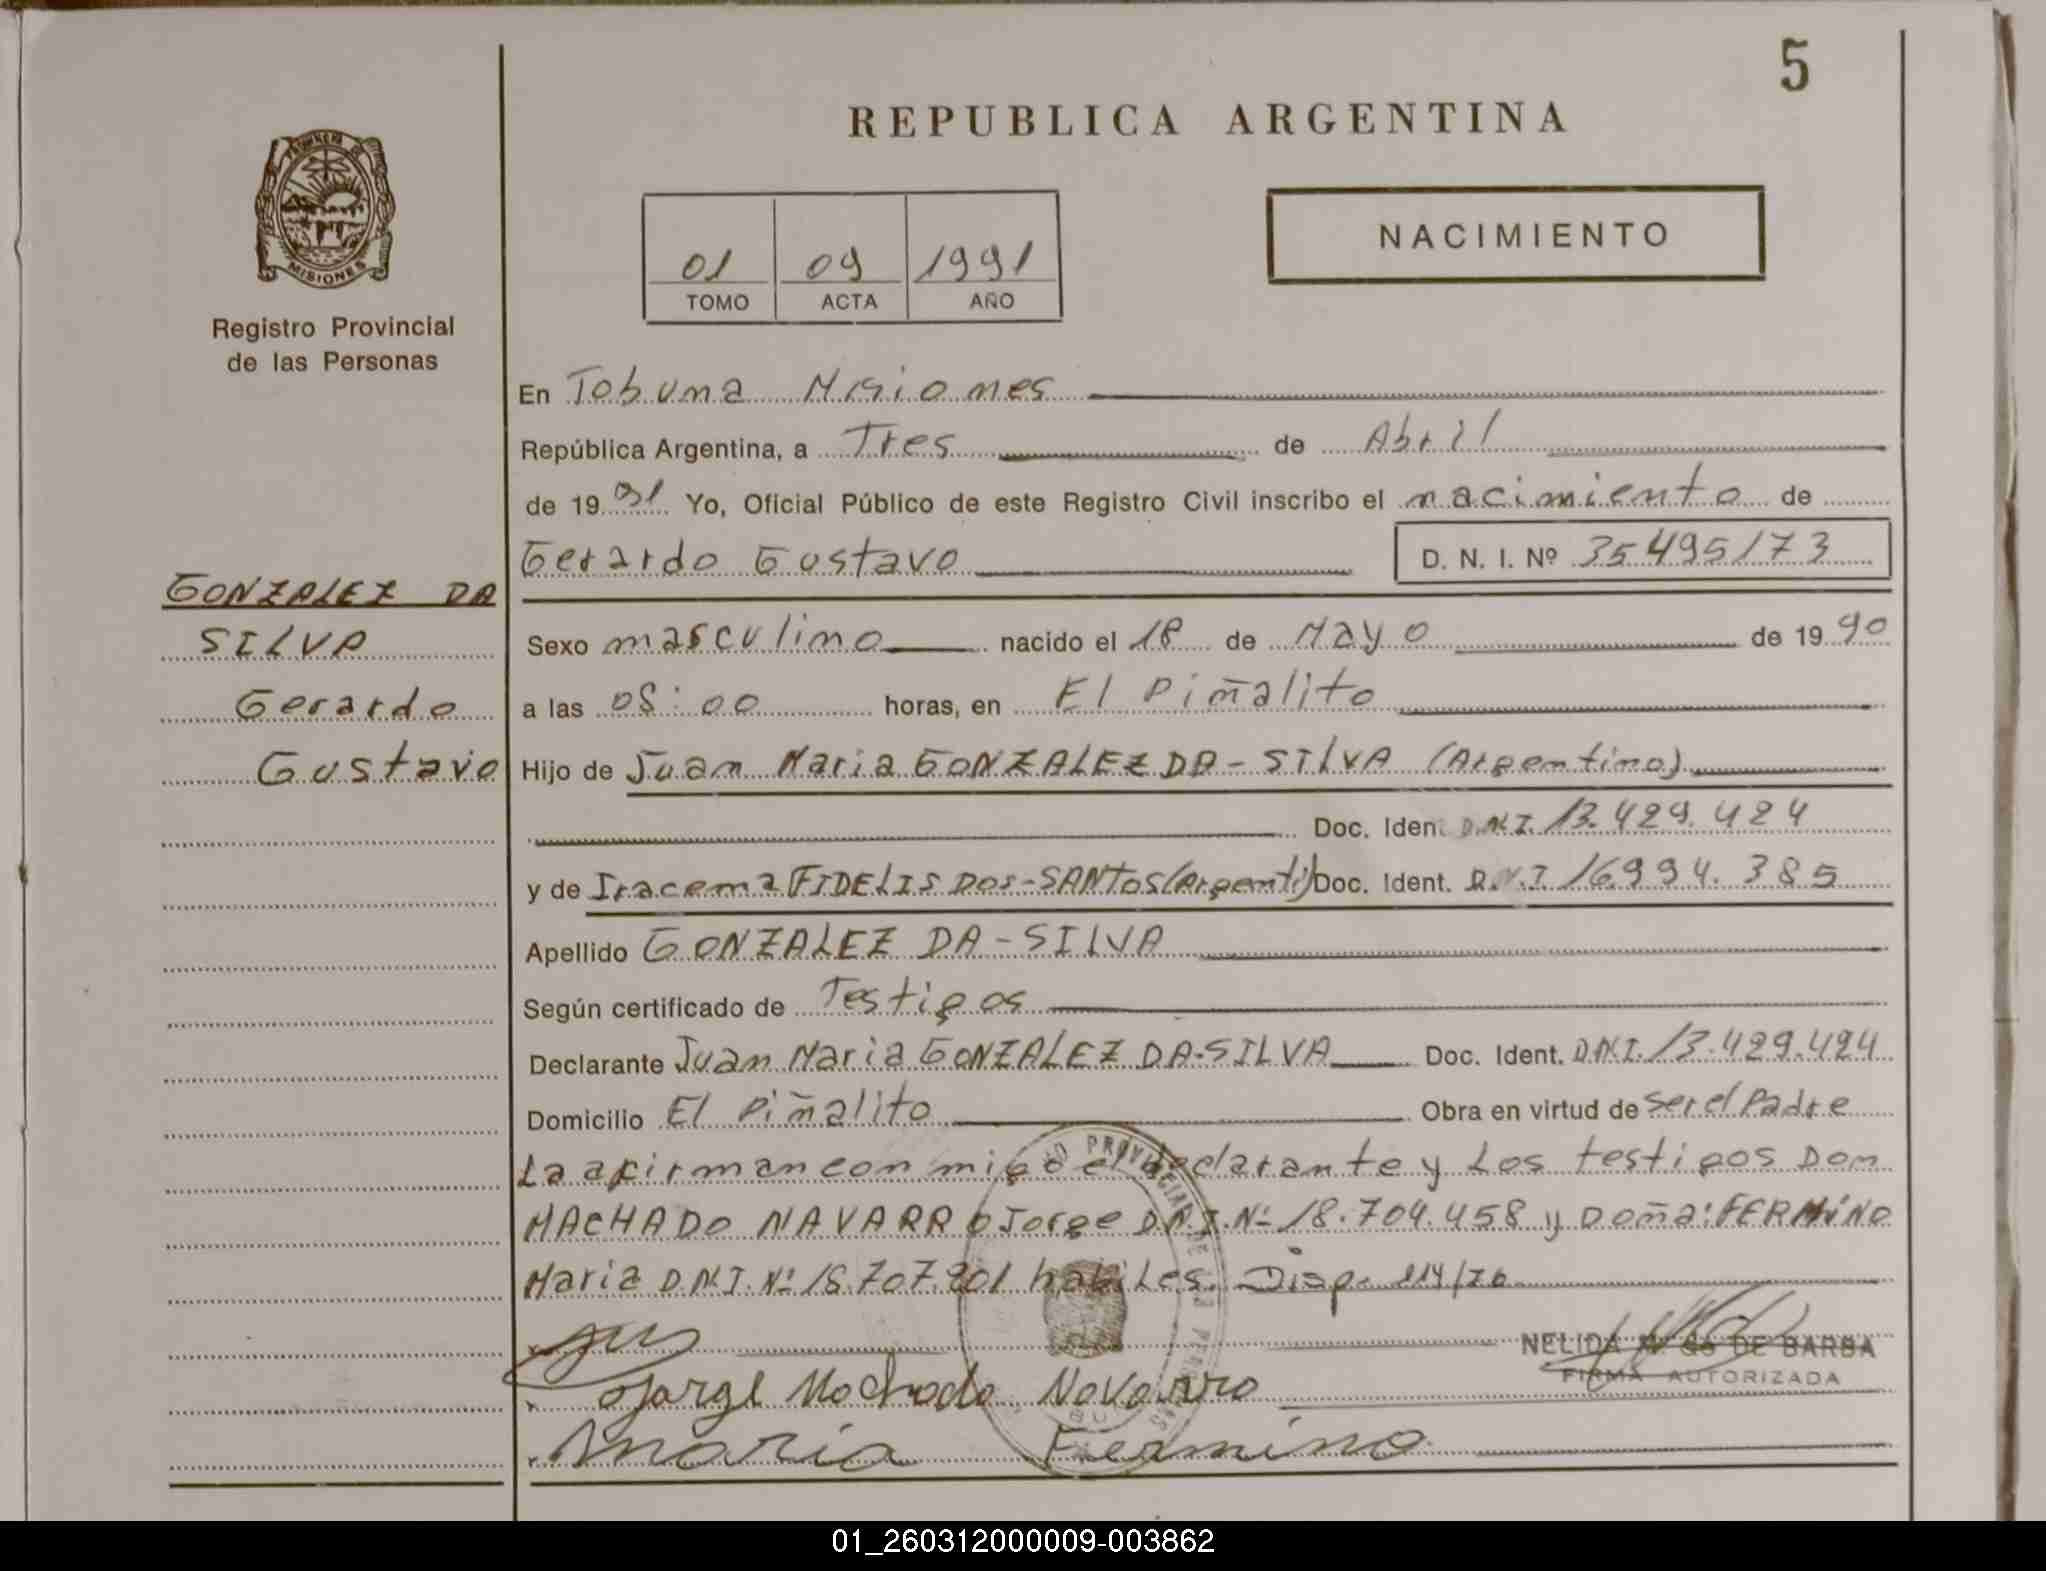 5
REPUBLICA ARGENTINA
PROVINCIA DE
MISIONES
Registro Provincial
de las Personas
NACIMIENTO
01 09 1991
TOMO ACTA AÑO
En Tobuna Misiones
República Argentina, a Tres de Abril
de 1991 Yo, Oficial Público de este Registro Civil inscribo el nacimiento de
Gerardo Gustavo D. N. I. Nº 35495173
GONZALEZ DA
SILVA
Gerardo
Gustavo
Sexo masculino nacido el 18 de Mayo de 1990
a las 08:00 horas, en El Piñalito
Hijo de Juan Maria GONZALEZ DA-SILVA (Argentino)
Doc. Iden. D.N.I. 13.429.424
y de Iracema FIDELIS DOS-SANTOS (Argenti) Doc. Ident. D.N.I 16994.385
Apellido GONZALEZ DA-SILVA
Según certificado de Testigos
Declarante Juan Maria GONZALEZ DA-SILVA Doc. Ident. D.N.I. 13.429.424
Domicilio El Piñalito Obra en virtud de Ser el Padre
La afirman con migo el declarante y Los testigos Don
MACHADO NAVARRO Jorge D.N.I. Nº 18.704.458 y Doña: FERMINO
Maria D.N.I. Nº 18.707.201 habiles. Disp. 114/76
NELIDA DE BARBA
FIRMA AUTORIZADA
Jorge Machado Navarro
Maria Fermino
01_260312000009-003862